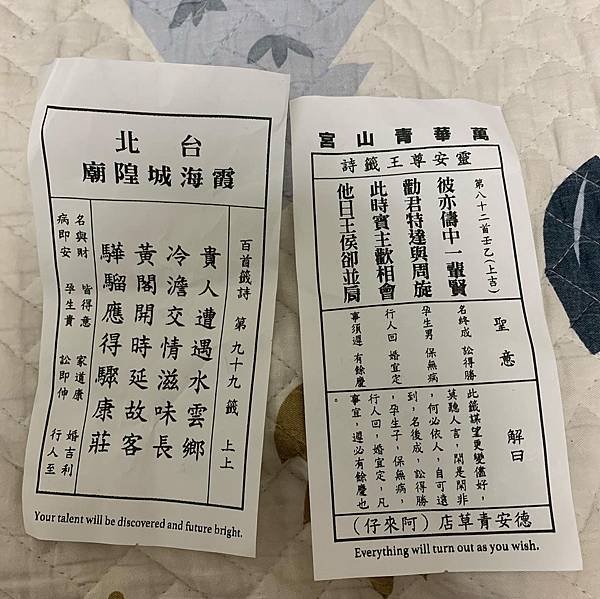 台北
霞海城隍廟
百首籤詩 第九十九籤 上上
貴人遭遇水雲鄉
冷澹交情滋味長
黃閣開時延故客
驊騮應得驟康莊
名興財 皆得意 家道康 婚吉利
病即安 孕生貴 訟即伸 行人至
Your talent will be discovered and future bright.
萬華青山宮
靈安尊王籤詩
第八十二首壬乙(上吉)
彼亦儔中一輩賢
勸君特達與周旋
此時賓主歡相會
他日王侯卻並肩
聖意
名終成 訟得勝
孕生男 保無病
行人回 婚宜定
事須遲 有餘慶
解曰
此籤謀望更變儘好,
莫聽人言,閑是閑非
,何必依人,自可遠
到,名後成,訟得勝
,孕生子,保無病,
行人回,婚宜定,凡
事宜,遲必有餘慶也
。
德安青草店(阿來仔)
Everything will turn out as you wish.